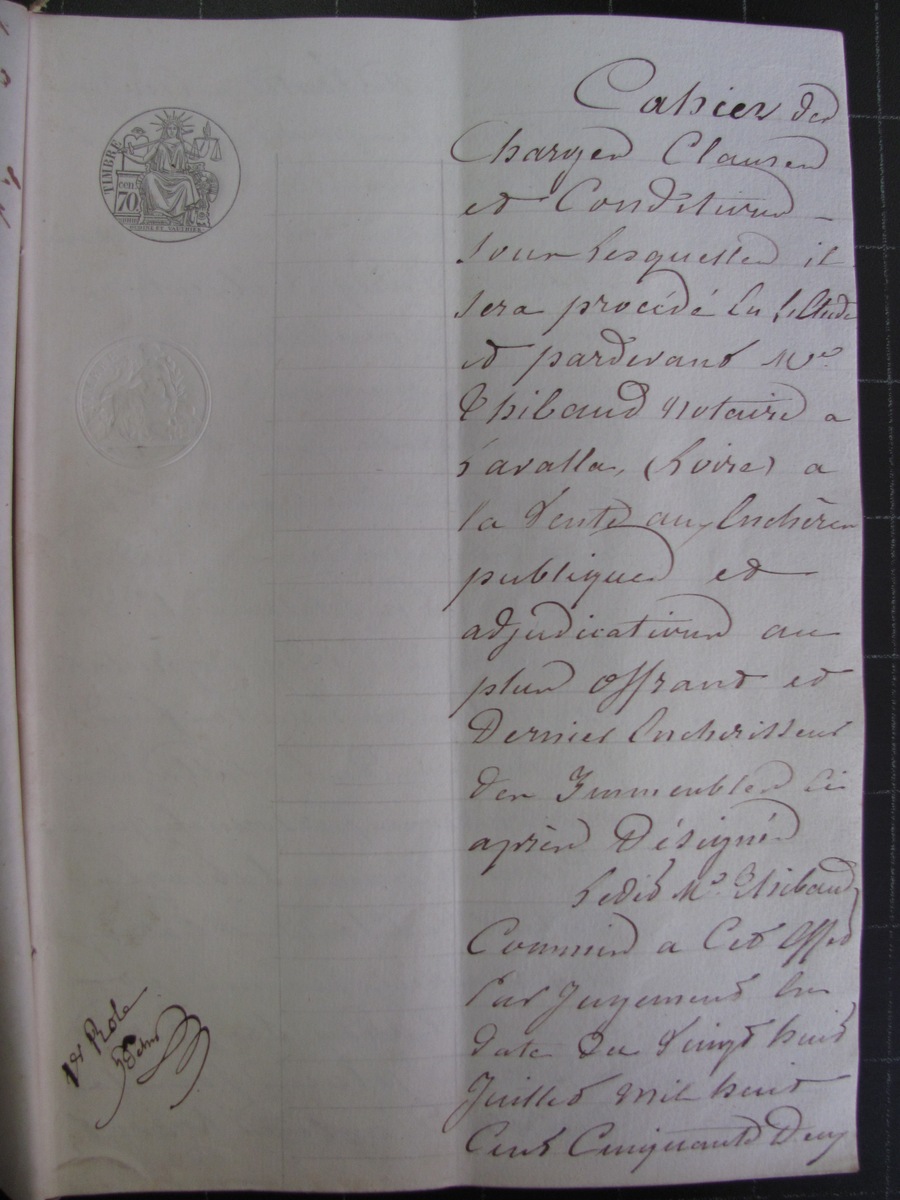 TIMBRE
cen
70
Cahier des
Charges Clauses
et Conditions
sous lesquelles il
sera procédé en l'Etude
et pardevant Me
Thibaud Notaire a
Lavalla, (Loire) a
la Vente aux Enchères
publiques et
adjudications au
plus offrant et
Dernier Encherisseur
des Immeubles ci
après Désignés
Ledit Me Thibaud
Commis a Cet Effet
Par Jugement en
date du Vingt huit
Juillet mil huit
Cent Cinquante Deux
1er Role